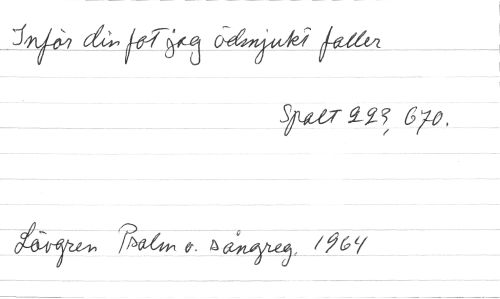 Inför din fot jag ödmjukt faller
Spalt 223, 670.
Lövgren Psalm o. sångreg. 1964